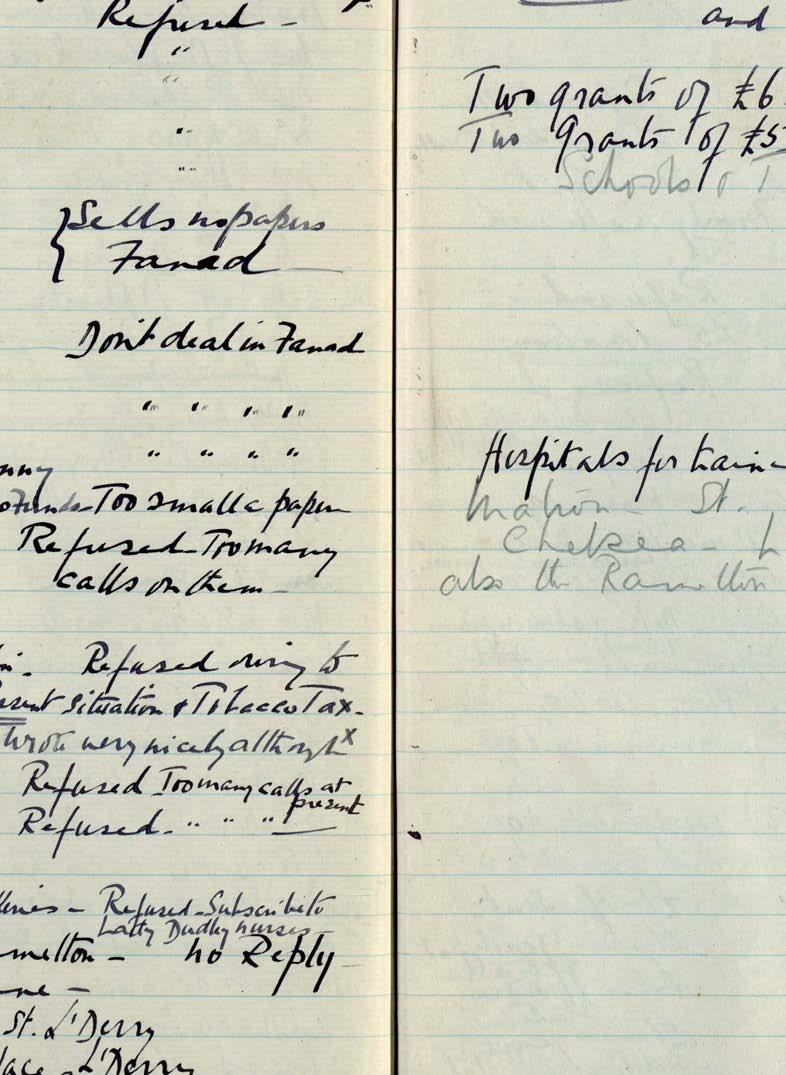 Refused -
"
"
"
"
Sells no papers
Fanad
Don't deal in Fanad
" " " "
" " " "
Too small a paper
Refused - Too many
calls on them -
Refused owing to
situation & Tobacco Tax -
wrote very nicely although x
Refused Too many calls at
present
Refused - " " "
Refused - Subscribe to
Lady Dudley nurses -
no Reply
St. L'Derry
L'Derry
and
Two grants of £6
Two Grants of £5
Schools & T
Hospitals for
Matron - St.
Chelsea -
also the Ramelton